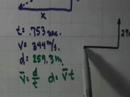 x
t= .753 sec.
v= 344 m/s.
d= 259.3m
v̄= d/t d= v̄t